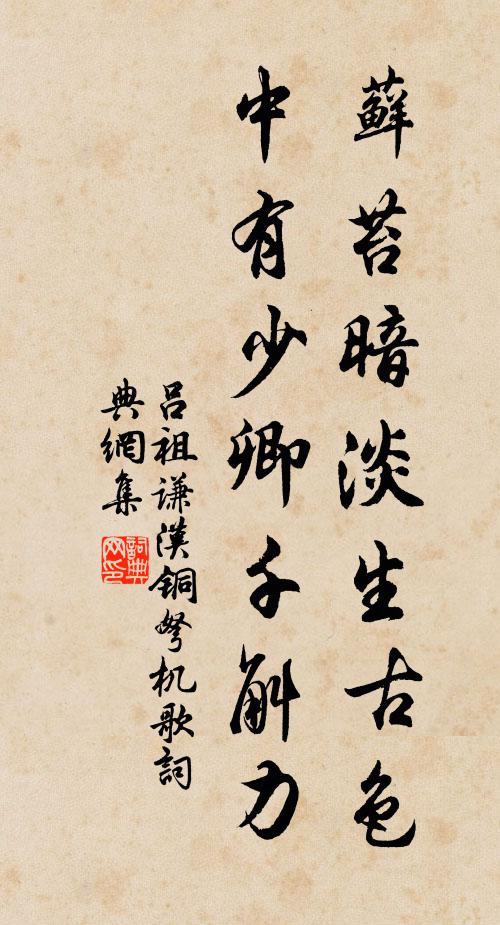 蘚苔暗淡生古色
中有少卿千斛力
吕祖谦漢铜弩机歌詞
典網集
詞典网印